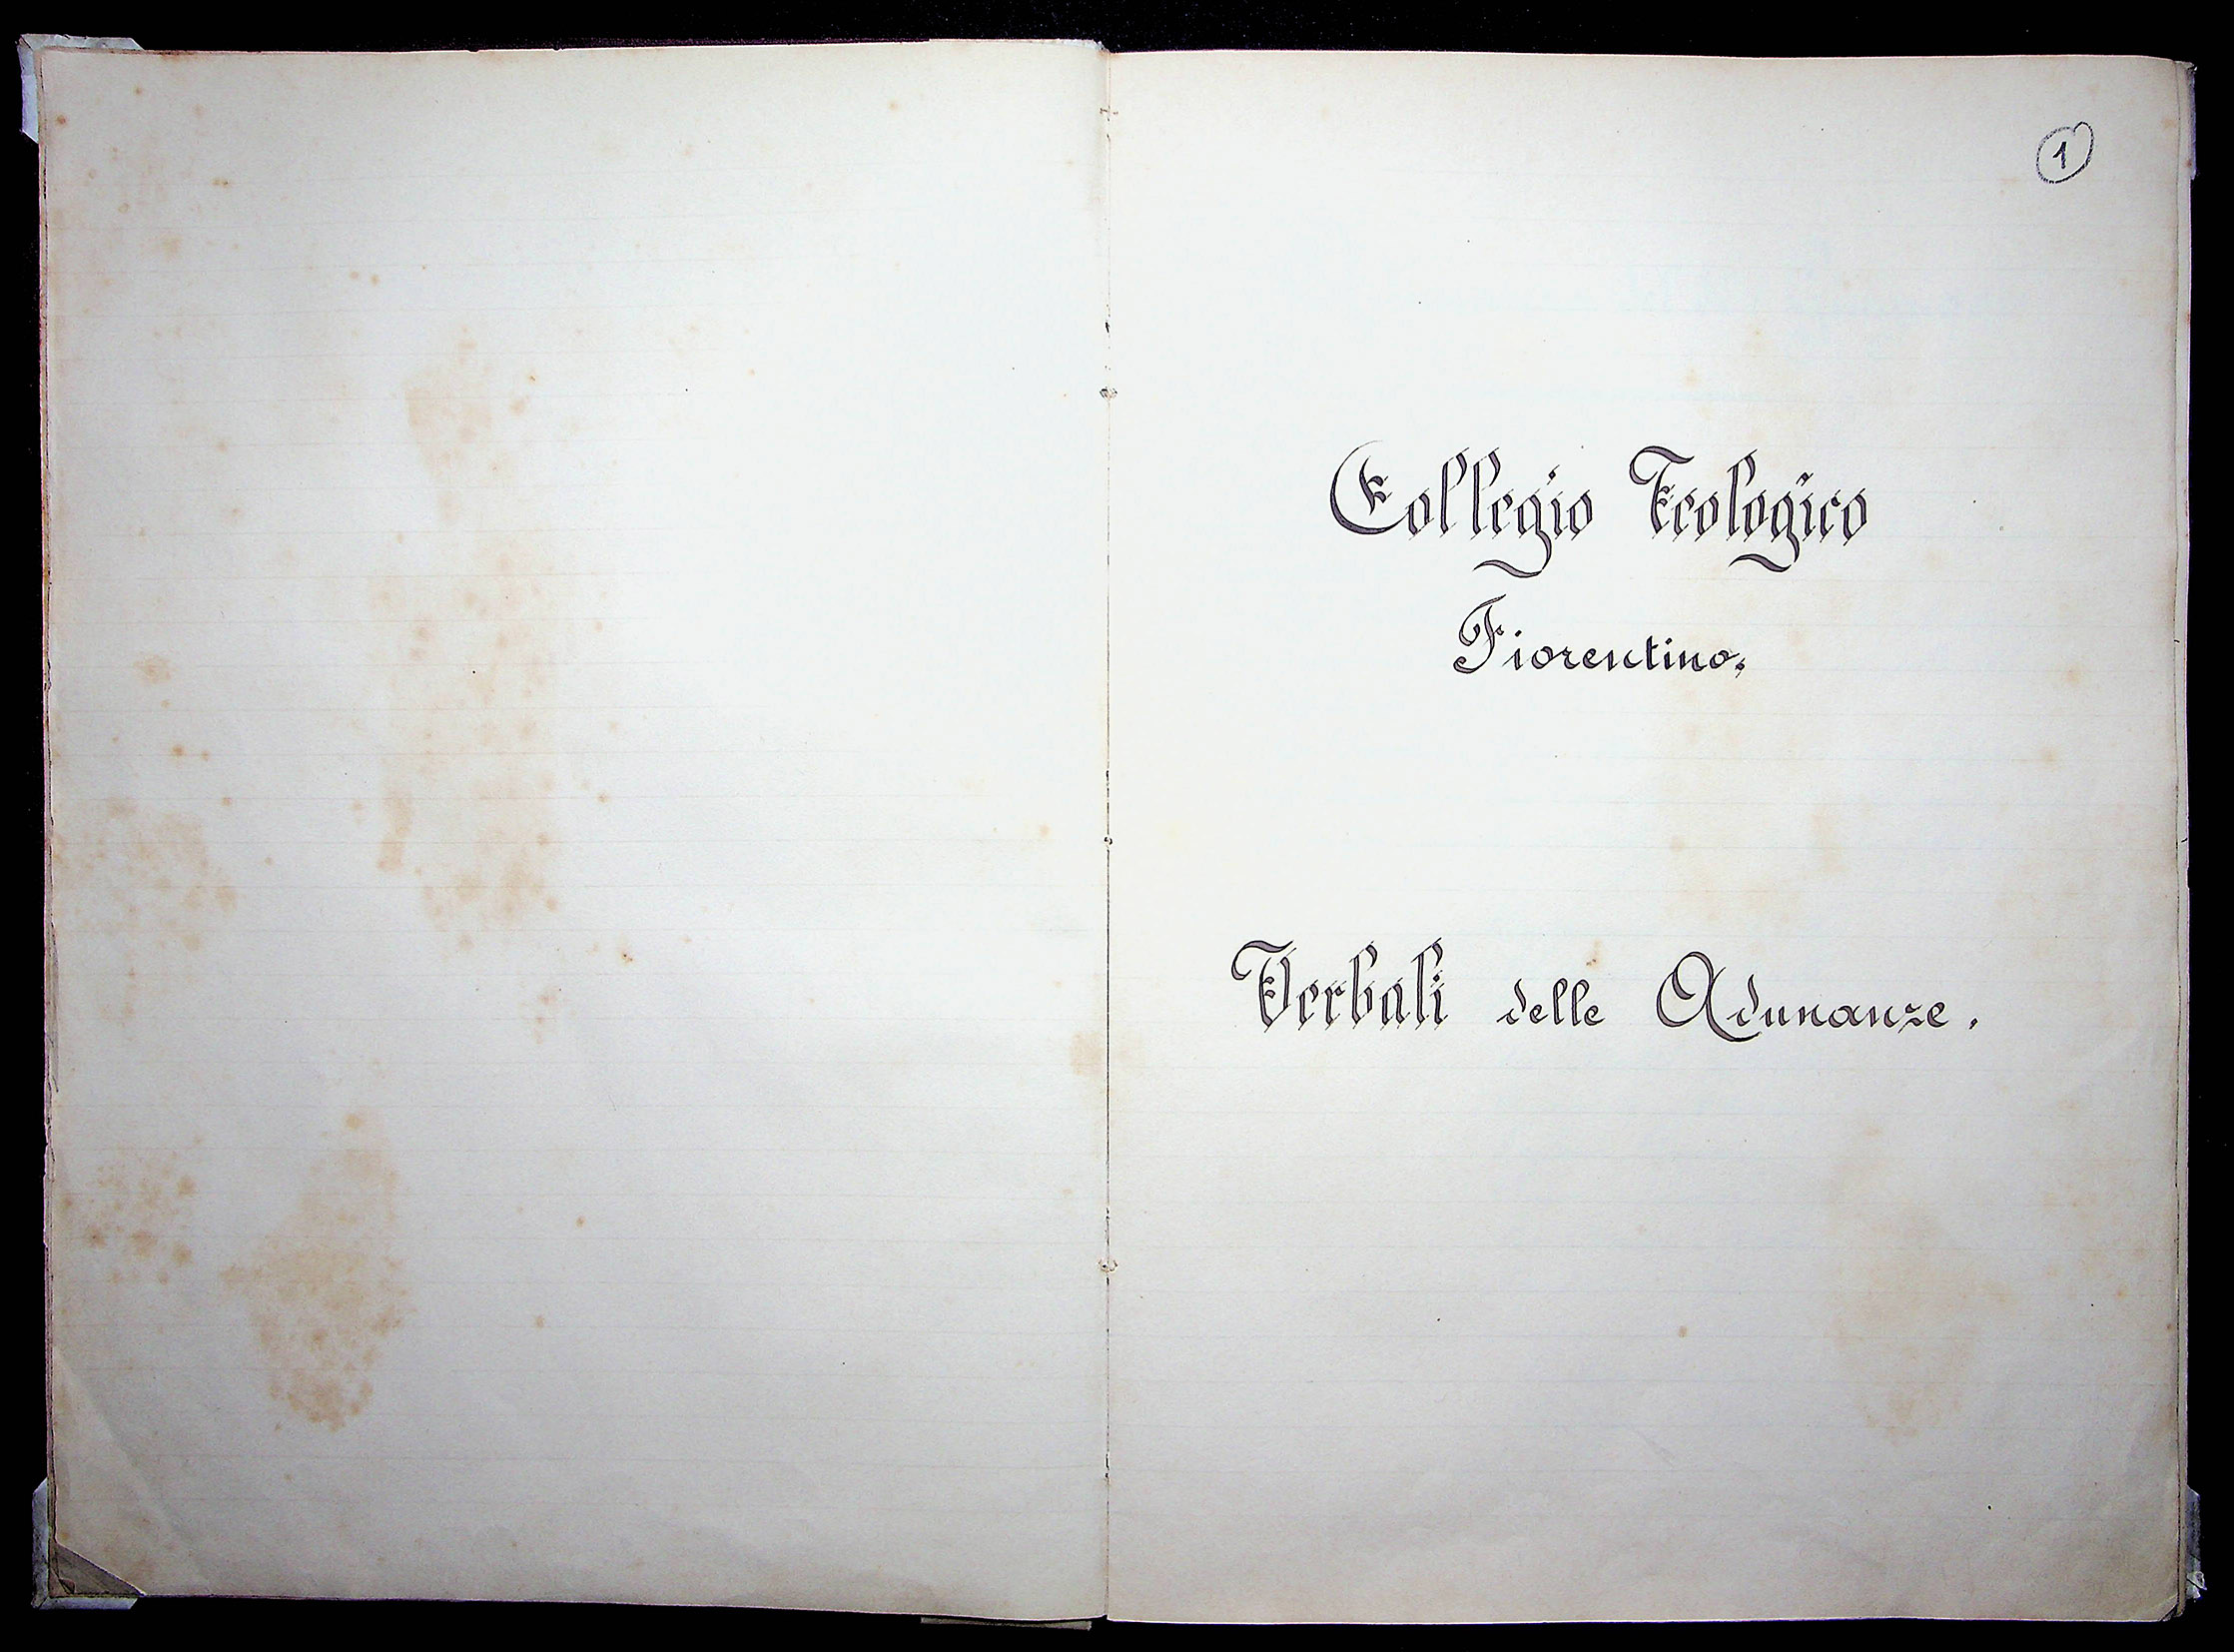 1
Collegio Teologico
Fiorentino.
Verbali delle Adunanze.